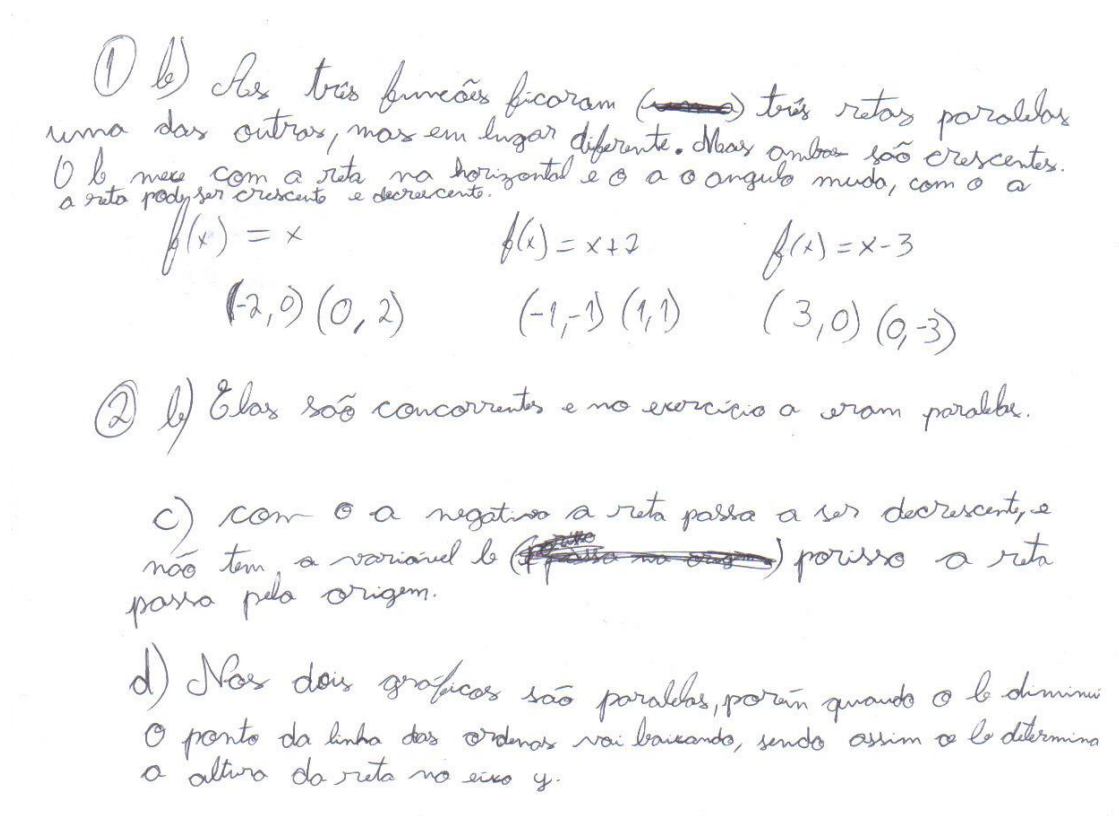 ① b) As três funcões ficaram () três retas paralelas
uma das outras, mas em lugar diferente. Mas ambas são crescentes.
O b mexe com a reta na horizontal e o a o angulo muda, com o a
a reta pode ser crescente e decrescente.
f(x) = x f(x) = x+2 f(x) = x-3
(-2,0) (0, 2) (-1,-1) (1,1) (3,0) (0,-3)
② b) Elas são concorrentes e no exercício a eram paralelas.
c) com o a negativo a reta passa a ser decrescente, e
não tem a variável b () porisso a reta
passa pela origem.
d) Nos dois gráficos são paralelas, porém quando o b diminui
O ponto da linha das ordenas vai baixando, sendo assim o b determina
a altura da reta no eixo y.